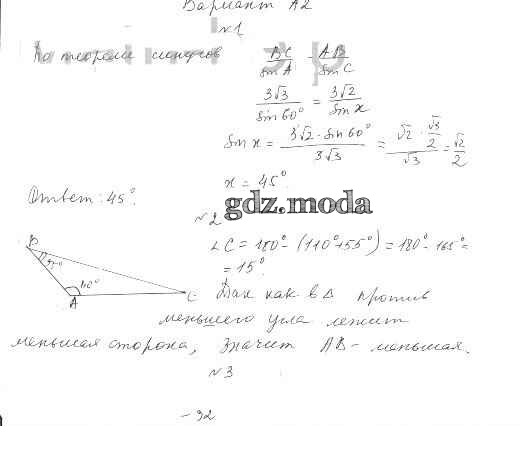 Вариант А2
№1
По теореме синусов BC/sin A = AB/sin C
3√3/sin 60° = 3√2/sin x
sin x = 3√2 · sin 60°/3√3 = √2 · √3/2/√3 = √2/2
x = 45°.
Ответ: 45°.
gdz.moda
№2
∠C = 180° - (110° + 55°) = 180° - 165° =
= 15°.
B
A
C
Так как в Δ против
меньшего угла лежит
меньшая сторона, значит AB - меньшая.
№3
- 92